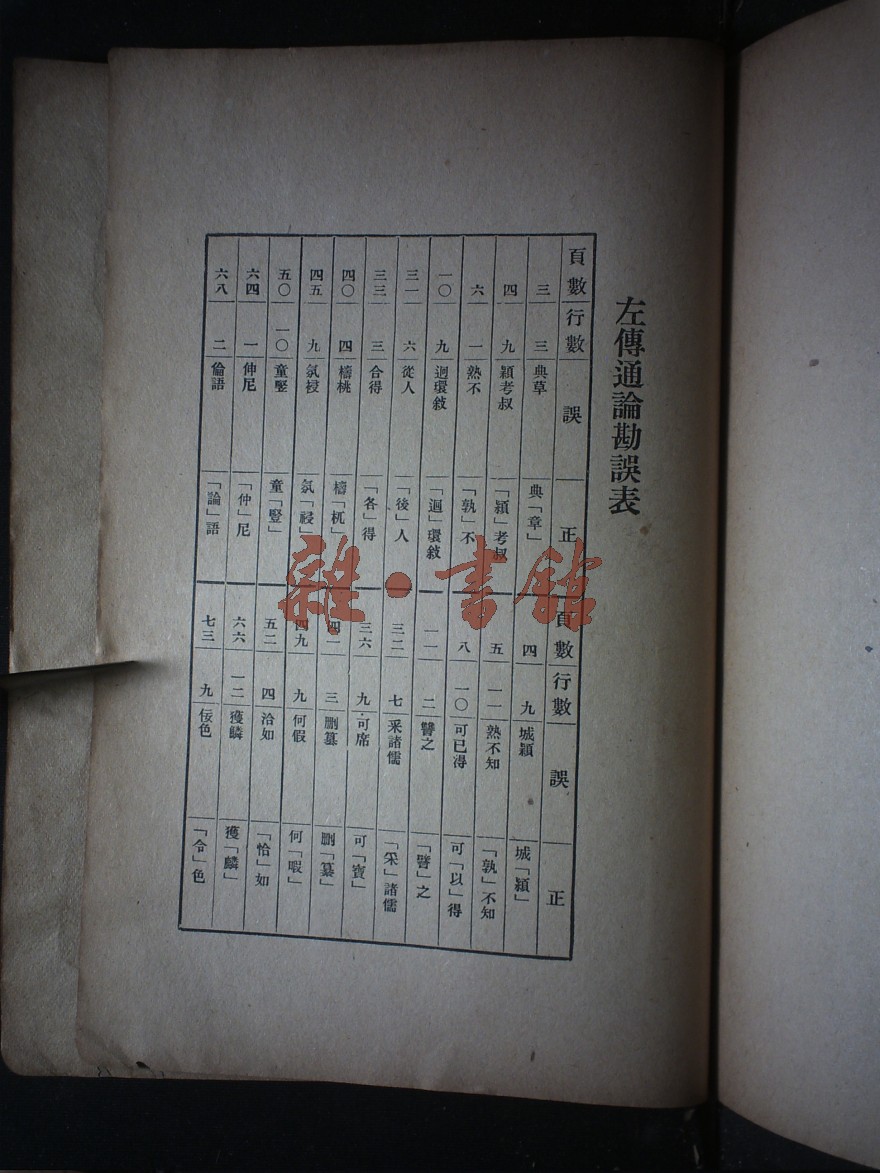 左傳通論勘誤表
頁數 行數 誤 正 頁數 行數 誤 正
三 三 典草 典「章」 四 九 城穎 城「潁」
四 九 穎考叔 「潁」考叔 五 一一 熟不知 「孰」不知
六 一 熟不 「孰」不 八 一〇 可已得 可「以」得
一〇 九 迥環敘 「迴」環敘 一一 二 譬之 「譬」之
三一 六 從人 「後」人 三二 七 采諸儒 「采」諸儒
三三 三 合得 「各」得 三六 九 可席 可「寶」
四〇 四 檮桃 檮「杌」 四一 三 刪墓 刪「纂」
四五 九 氛祲 氛「祲」 四九 九 何假 何「暇」
五〇 一〇 童豎 童「豎」 五二 四 洽如 「恰」如
六四 一 伸尼 「仲」尼 六六 一二 獲鱗 獲「麟」
六八 二 倫語 「論」語 七三 九 佞色 「令」色
雜·書館